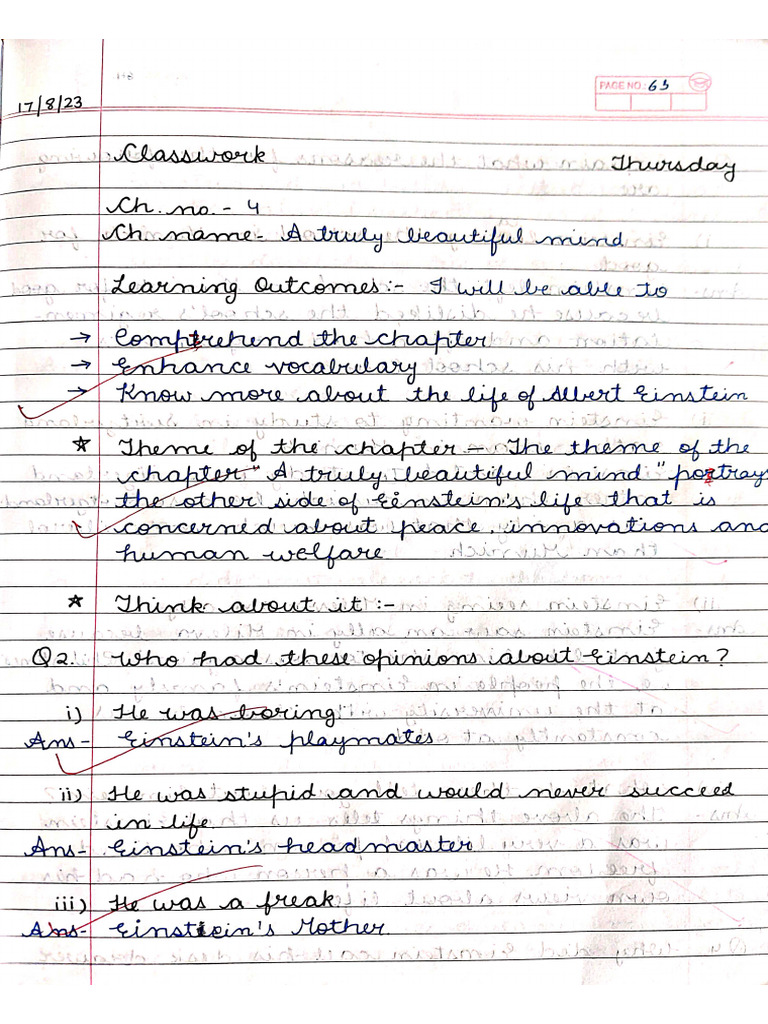 PAGE NO.: 63
17/8/23
Classwork
Thursday
Ch. no. - 4
Ch name - A truly beautiful mind
Learning Outcomes :- I will be able to
→ Comprehend the chapter
→ Enhance vocabulary
→ Know more about the life of Albert Einstein
★ Theme of the chapter - The theme of the
chapter "A truly beautiful mind" portrays
the other side of Einstein's life that is
concerned about peace, innovations and
human welfare
★ Think about it :-
Q2. Who had these opinions about Einstein?
i) He was boring
Ans- Einstein's playmates
ii) He was stupid and would never succeed
in life
Ans- Einstein's headmaster
iii) He was a freak
Ans- Einstein's Mother